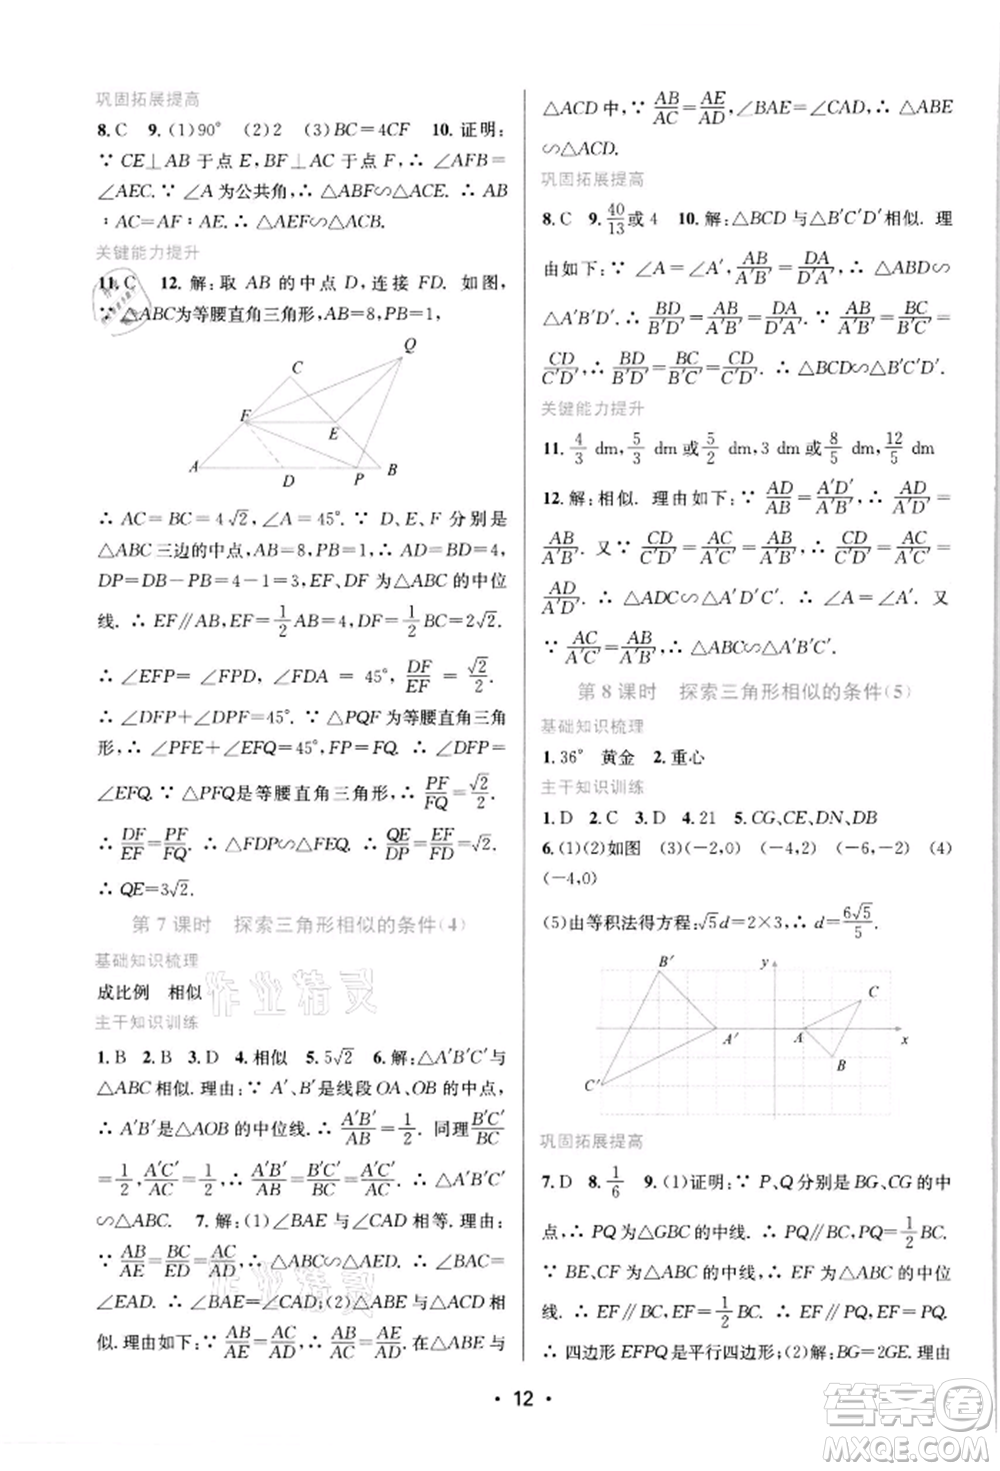 巩固拓展提高
8.C 9.(1)90° (2)2 (3)BC=4CF 10.证明:
∵ CE⊥AB 于点 E,BF⊥AC 于点 F,∴ ∠AFB=
∠AEC.∵ ∠A 为公共角,∴ △ABF∽△ACE.∴ AB
∶AC=AF∶AE.∴ △AEF∽△ACB.
关键能力提升
11.C 12.解:取 AB 的中点 D,连接 FD. 如图,
∵ △ABC为等腰直角三角形,AB=8,PB=1,
Q
C
F
E
A
D
P
B
∴ AC=BC=4√2,∠A=45°.∵ D、E、F 分别是
△ABC三边的中点,AB=8,∴ AD=BD=4,
DP=DB-PB=4-1=3,EF、DF 为△ABC 的中位
线. ∴ EF∥AB,EF=1/2AB=4,DF=1/2BC=2√2.
∴ ∠EFP= ∠FPD, ∠FDA =45°,DF/EF=√2/2.
∴ ∠DFP+∠DPF=45°.∵ △PQF为等腰直角三角
形,∴ ∠PFE+∠EFQ=45°,FP=PQ.∴ ∠DFP=
∠EFQ.∵ △PFQ是等腰直角三角形,∴ PF/FQ=√2/2.
∴ DF/EF=PF/FQ.∴ △FDP∽△FEQ.∴ QE/DP=EF/FD.
∴ QE=3√2.
第 7 课时 探索三角形相似的条件(4)
基础知识梳理
成比例 相似
主干知识训练
1.B 2.B 3.D 4.相似 5.5√2 6.解:△A′B′C′与
△ABC相似.理由:∵ A′、B′是线段OA、OB的中点,
∴ A′B′是△AOB的中位线.∴ A′B′/AB=1/2.同理B′C′/BC
=1/2,A′C′/AC=1/2.∴ A′B′/AB=B′C′/BC=A′C′/AC.∴ △A′B′C′
∽△ABC. 7.解:(1)∠BAE与∠CAD相等.理由:
∵ AB/AE=BC/ED=AC/AD,∴ △ABC∽△AED.∴ ∠BAC=
∠EAD.∴ ∠BAE=∠CAD;(2)△ABE与△ACD相
似.理由如下:∵ AB/AE=AC/AD,∴ AB/AC=AE/AD.在△ABE 与
△ACD 中,∵ AB/AC=AE/AD,∠BAE=∠CAD,∴ △ABE
∽△ACD.
巩固拓展提高
8.C 9.40/13或 4 10.解:△BCD与△B′C′D′相似. 理
由如下:∵ ∠A=∠A′,AB/A′B′=DA/D′A′,∴ △ABD∽
△A′B′D′.∴ BD/B′D′=AB/A′B′=DA/D′A′.∵ AB/A′B′=BC/B′C′=
CD/C′D′,∴ BD/B′D′=BC/B′C′=CD/C′D′.∴ △BCD∽△B′C′D′.
关键能力提升
11.4/3 dm,5/3 dm或5/2 dm,3 dm或8/5 dm,12/5 dm
12.解:相似. 理由如下:∵ AD/AB=A′D′/A′B′,∴ AD/A′D′=
AB/A′B′. 又∵ CD/C′D′=AC/A′C′=AB/A′B′,∴ CD/C′D′=AC/A′C′=
AD/A′D′.∴ △ADC∽△A′D′C′.∴ ∠A=∠A′. 又
∵ AC/A′C′=AB/A′B′,∴ △ABC∽△A′B′C′.
第 8 课时 探索三角形相似的条件(5)
基础知识梳理
1.36° 黄金 2.重心
主干知识训练
1.D 2.C 3.D 4.21 5.CG,CE,DN,DB
6.(1)(2)如图 (3)(-2,0) (-4,2) (-6,-2) (4)
(-4,0)
(5)由等积法得方程:√5d=2×3,d=6√5/5.
B′
y
C
A′
A
x
B
C′
巩固拓展提高
7.D 8.1/6 9.(1)证明:∵ P、Q分别是BG、CG的中
点,∴ PQ为△GBC的中线. ∴ PQ∥BC,PQ=1/2BC.
∵ BE、CF为△ABC的中线,∴ EF为△ABC的中位
线. ∴ EF∥BC,EF=1/2BC.∴ EF∥PQ,EF=PQ.
∴ 四边形EFPQ是平行四边形;(2)解:BG=2GE.理由
· 12 ·
作业精灵
作业精灵
答案圈
MXQE.COM